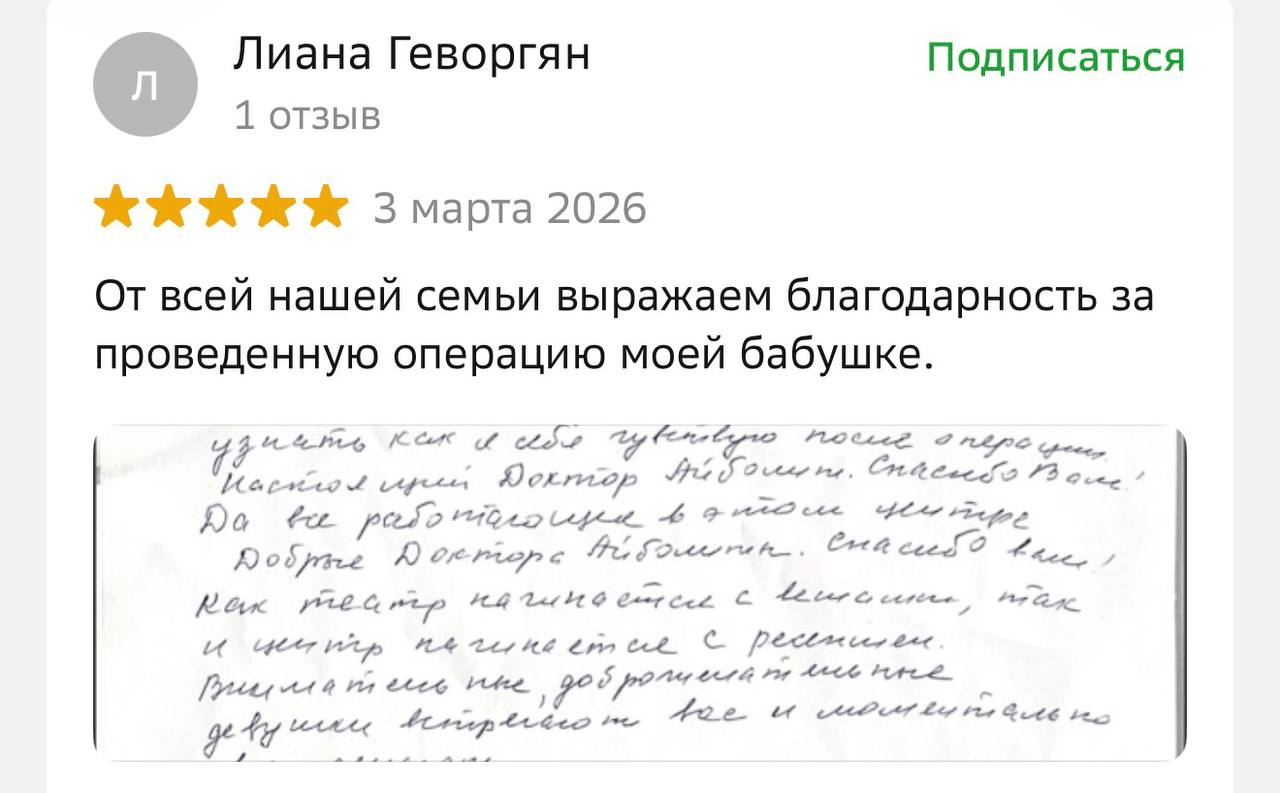 Л
Лиана Геворгян
Подписаться
1 отзыв
3 марта 2026
От всей нашей семьи выражаем благодарность за
проведенную операцию моей бабушке.
узнать как я себя чувствую после операции.
Настоящий Доктор Айболит. Спасибо Вам!
Да все работающие в этом центре
Добрые Доктора Айболиты. Спасибо вам!
Как театр начинается с вешалки, так
и центр начинается с ресепшен.
Внимательные, доброжелательные
девушки встречают вас и моментально